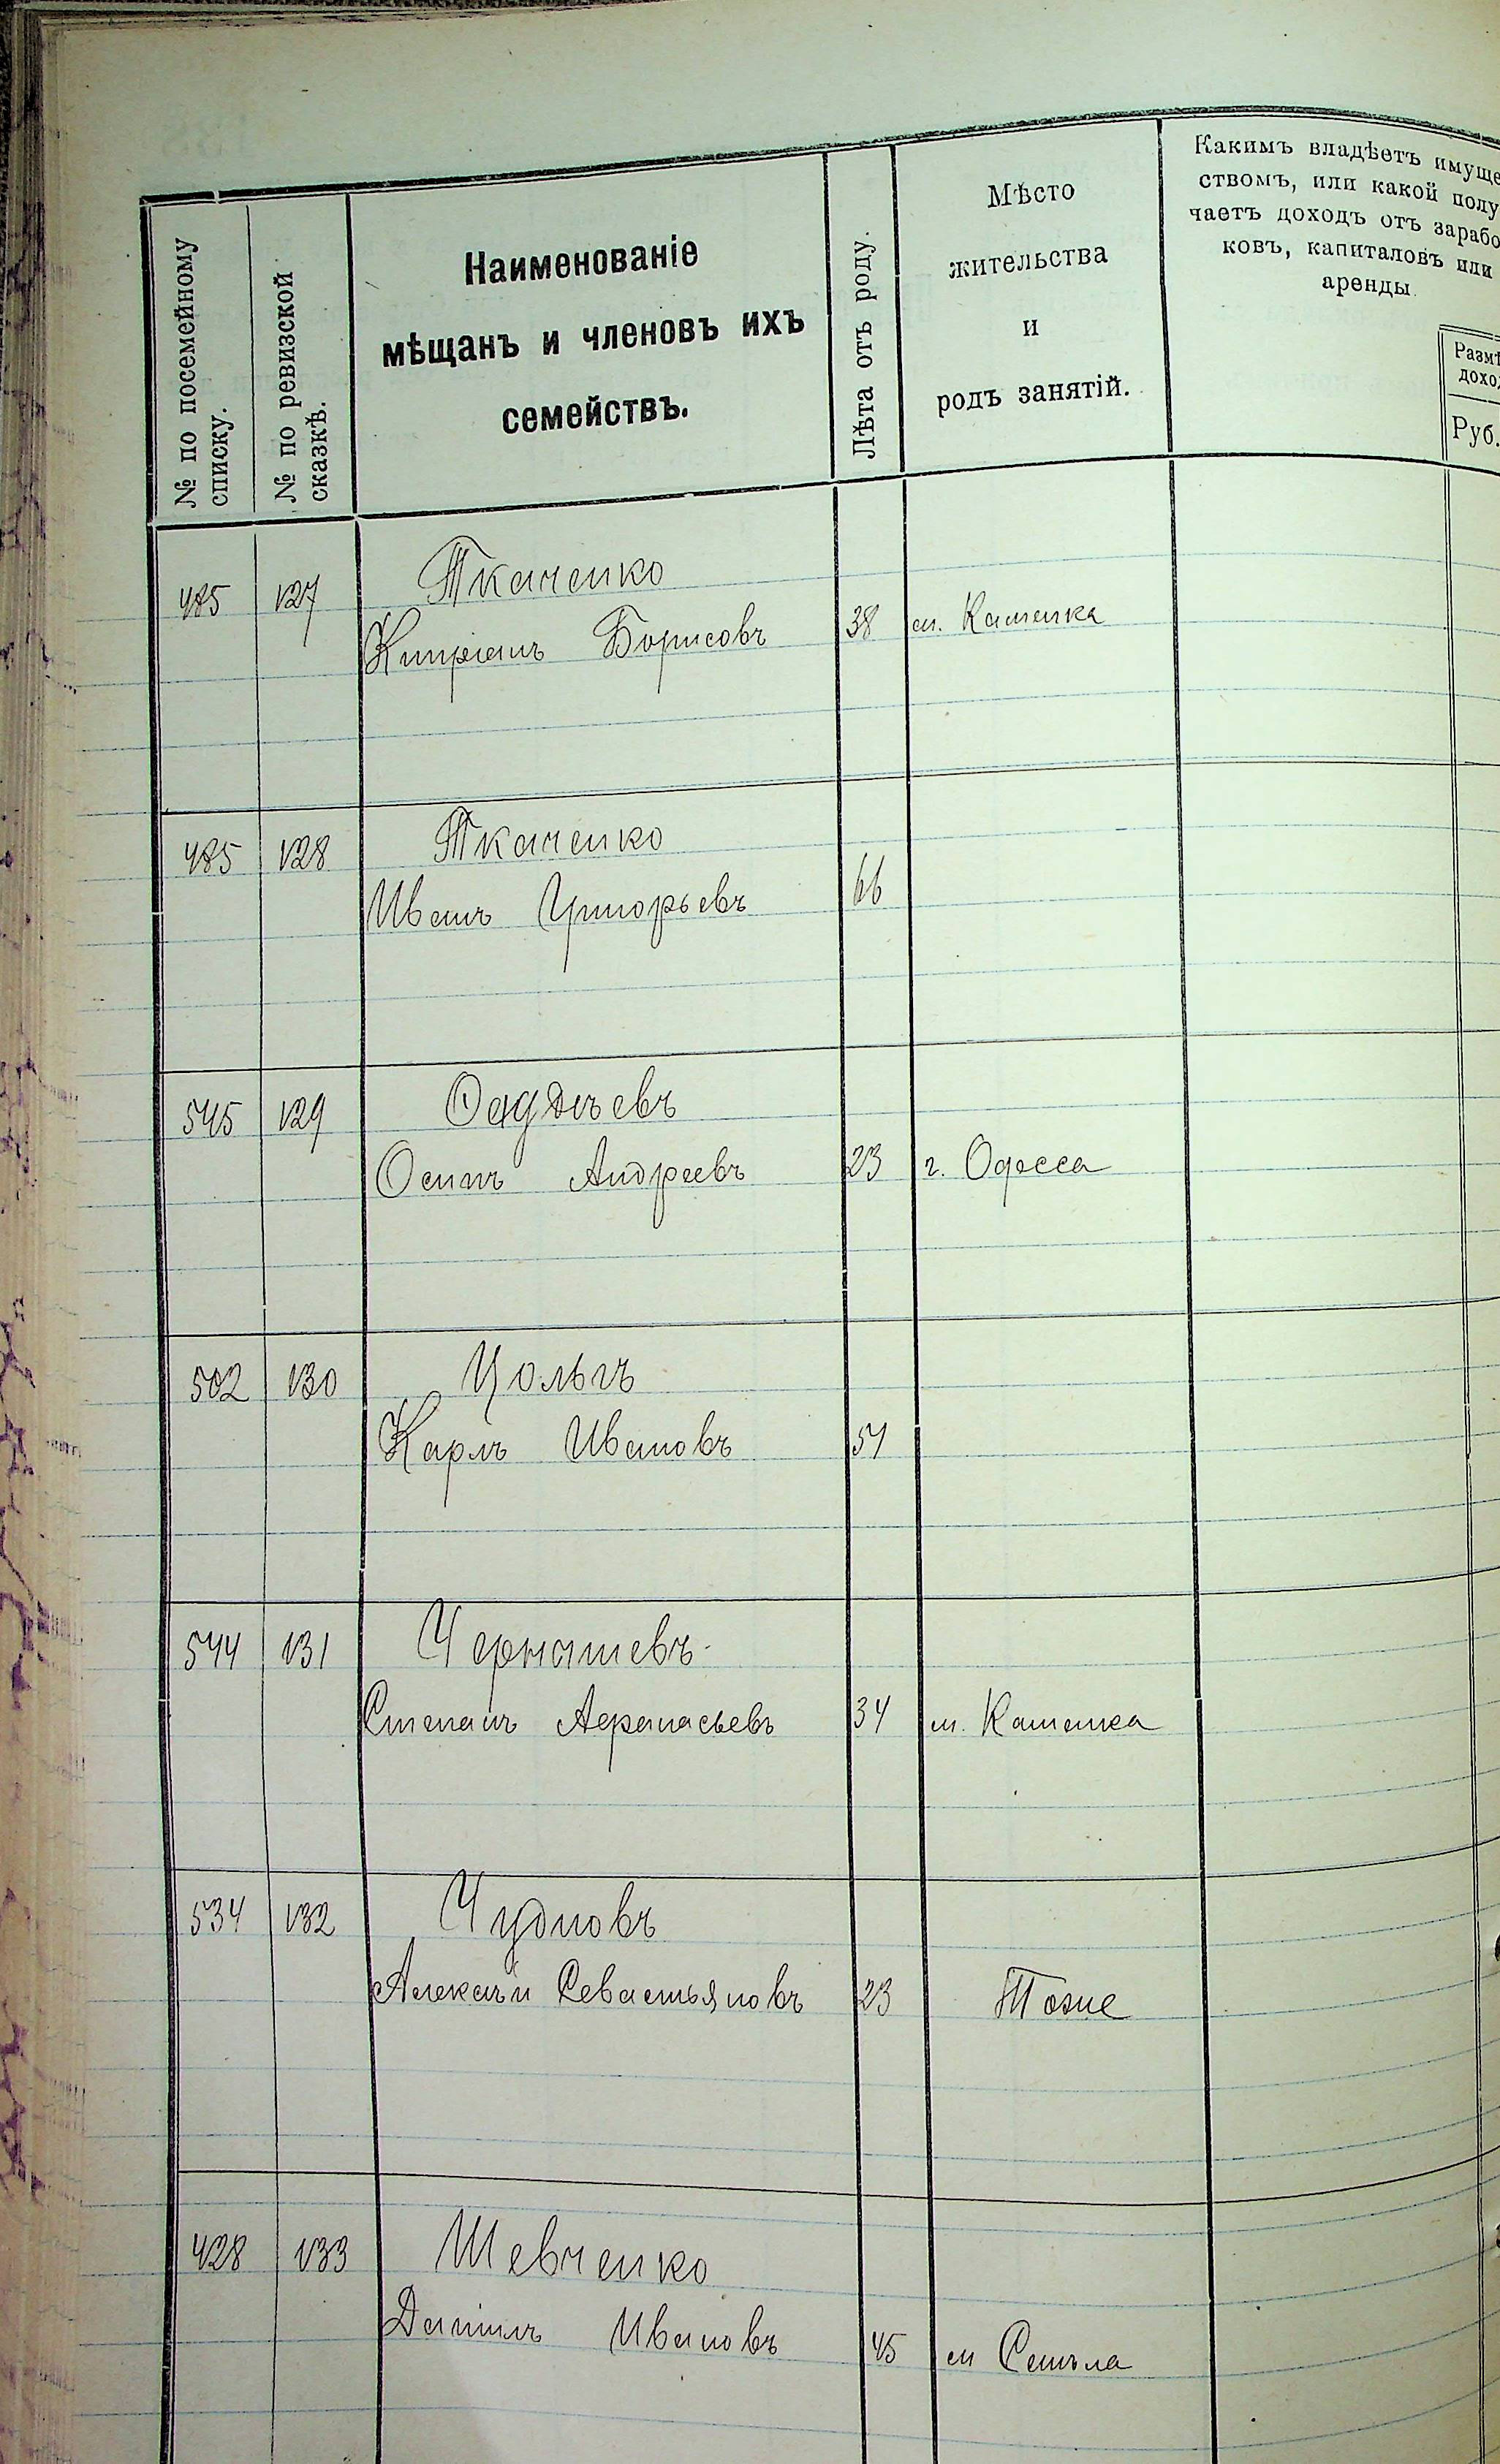 № по посемейному
списку.
№ по ревизской
сказкѣ.
Наименованіе
мѣщанъ и членовъ ихъ
семействъ.
Лѣта отъ роду.
Мѣсто
жительства
и
родъ занятій.
Какимъ владѣетъ имуще
ствомъ, или какой полу
чаетъ доходъ отъ зарабо
ковъ, капиталовъ или
аренды.
Размѣ
дохо
Руб.
485 127 Ткаченко
Кипріанъ Борисовъ 38 м. Каменка
485 128 Ткаченко
Иванъ Григорьевъ 66
545 129
Осипъ Андреевъ 23 г. Одесса
502 130 Цольгъ
Карлъ Ивановъ 51
544 131 Чернышевъ
Степанъ Афанасьевъ 34 м. Каменка
534 132 Чудновъ
Алексѣй Севастьяновъ 23 Тоже
428 133 Шевченко
Даніилъ Ивановъ 45 м Смѣла